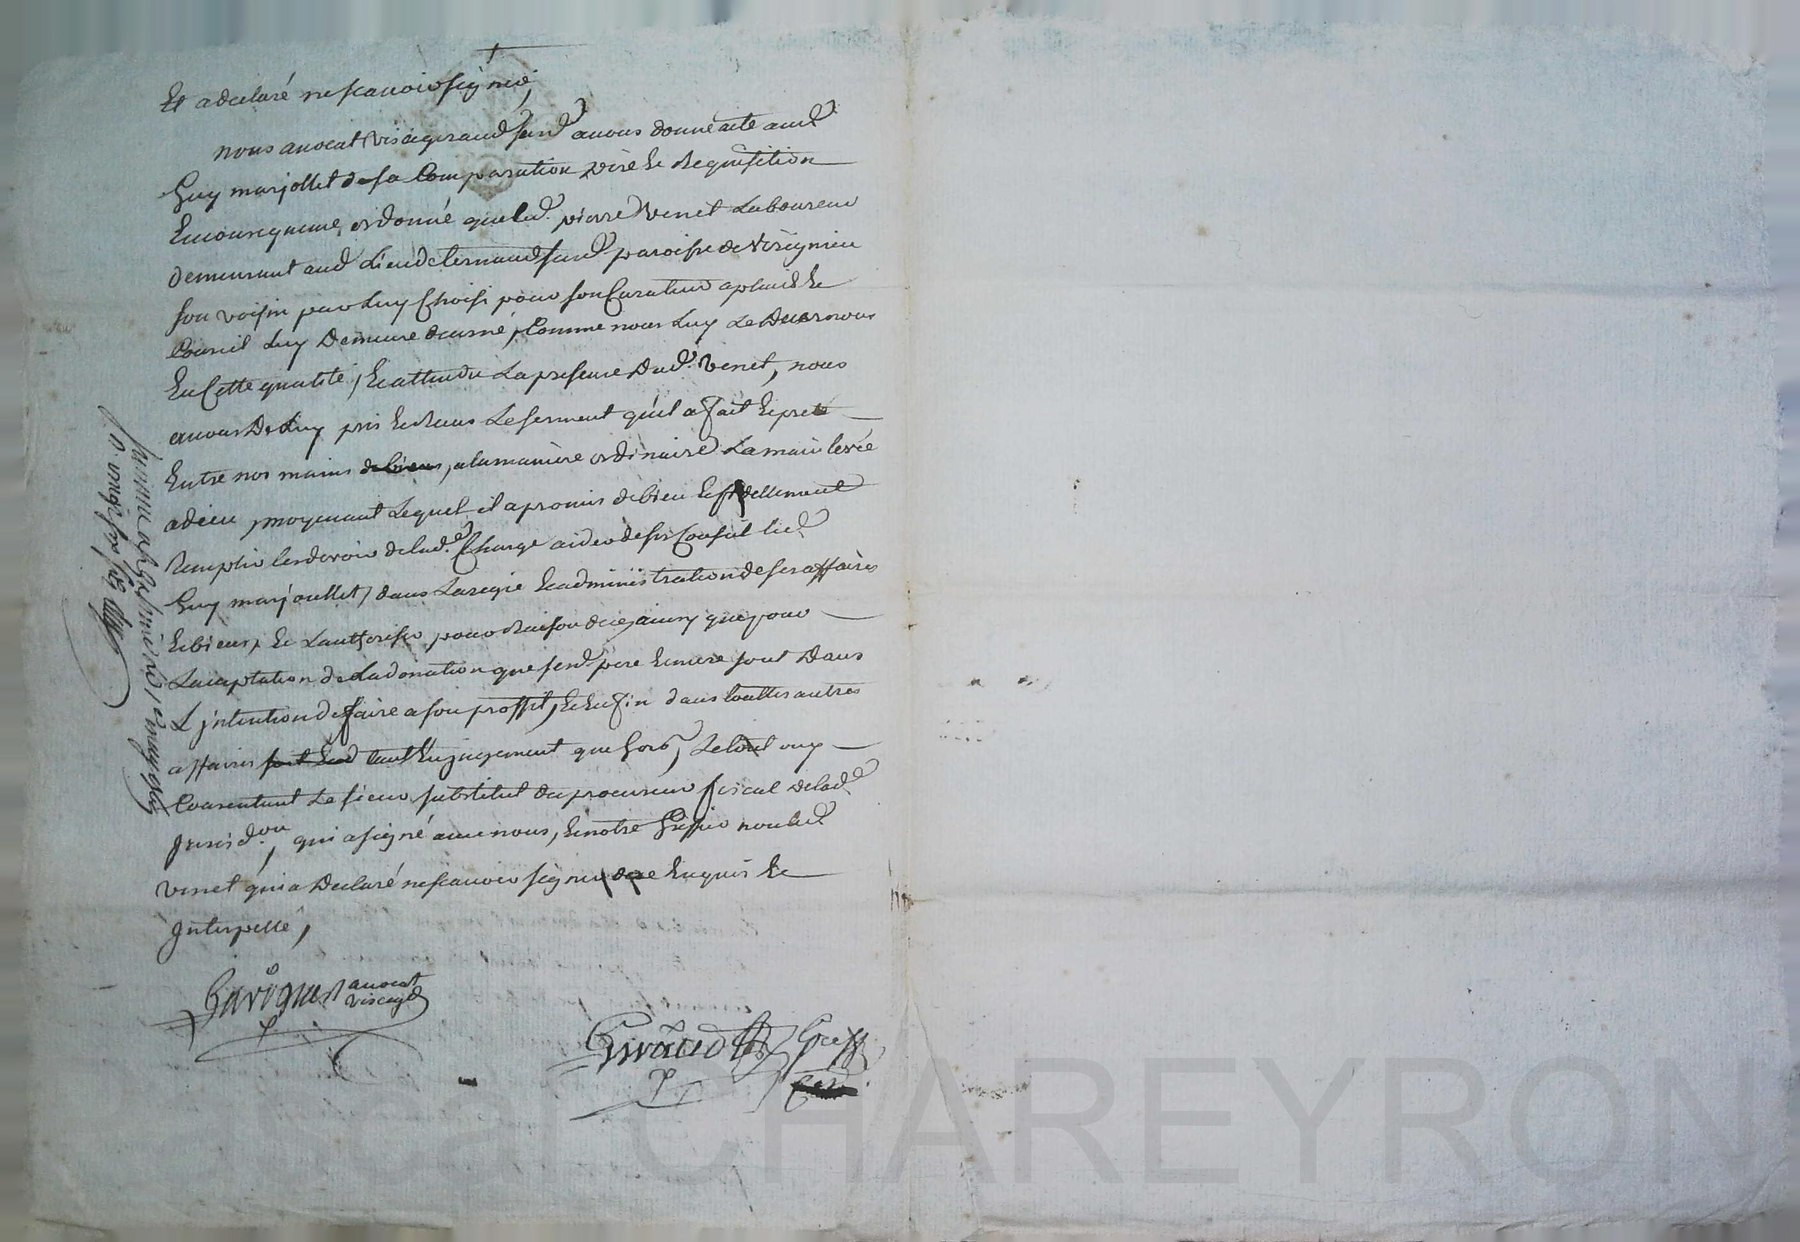 Et a declaré ne scavoir signer,
nous avocat viscegerand susd. avons donné acte aud.
Guy marjollet de sa Comparution, dire et Requisition
Encoursequence, ordonné que led. pierre Venet Laboureur
demeurant aud. Lieu de susd. paroisse de
son voisin par Luy Choisi pour son Curateur a plaids et
Conseil Luy Demeure decerné, Comme nous Luy Le Decernons
En Cette qualité, Et attendu La presence Dud. Venet, nous
avons De Luy pris Et Receu Le serment qu'il a fait Et preté
Entre nos mains, a la maniere ordinaire La main levée
a dieu, moyenant Lequel il a promis de bien Et fidellement
Remplir les devoir de lad. Charge aider de son Conseil led.
Guy marjoullet, dans La regie Et administration de ses affaires
Et biens, Et L'authoriser, pour Raison de ce, ainsy que pour
L'aceptation de La donation que sesd. pere Et mere sont Dans
L'jntention de faire a son proffit, Et Enfin dans touttes autres
affaires tant En jugement que hors, Le tout ouy
Consentant Le sieur substitut du procureur fiscal de lad.
Jurisd.on, qui a signé avec nous, Et notre Greffier non led.
Venet qui a Declaré ne scavoir signer de ce Enquis Et
Interpellé,
avocat
viscegd
Greff
Pascal CHAREYRON